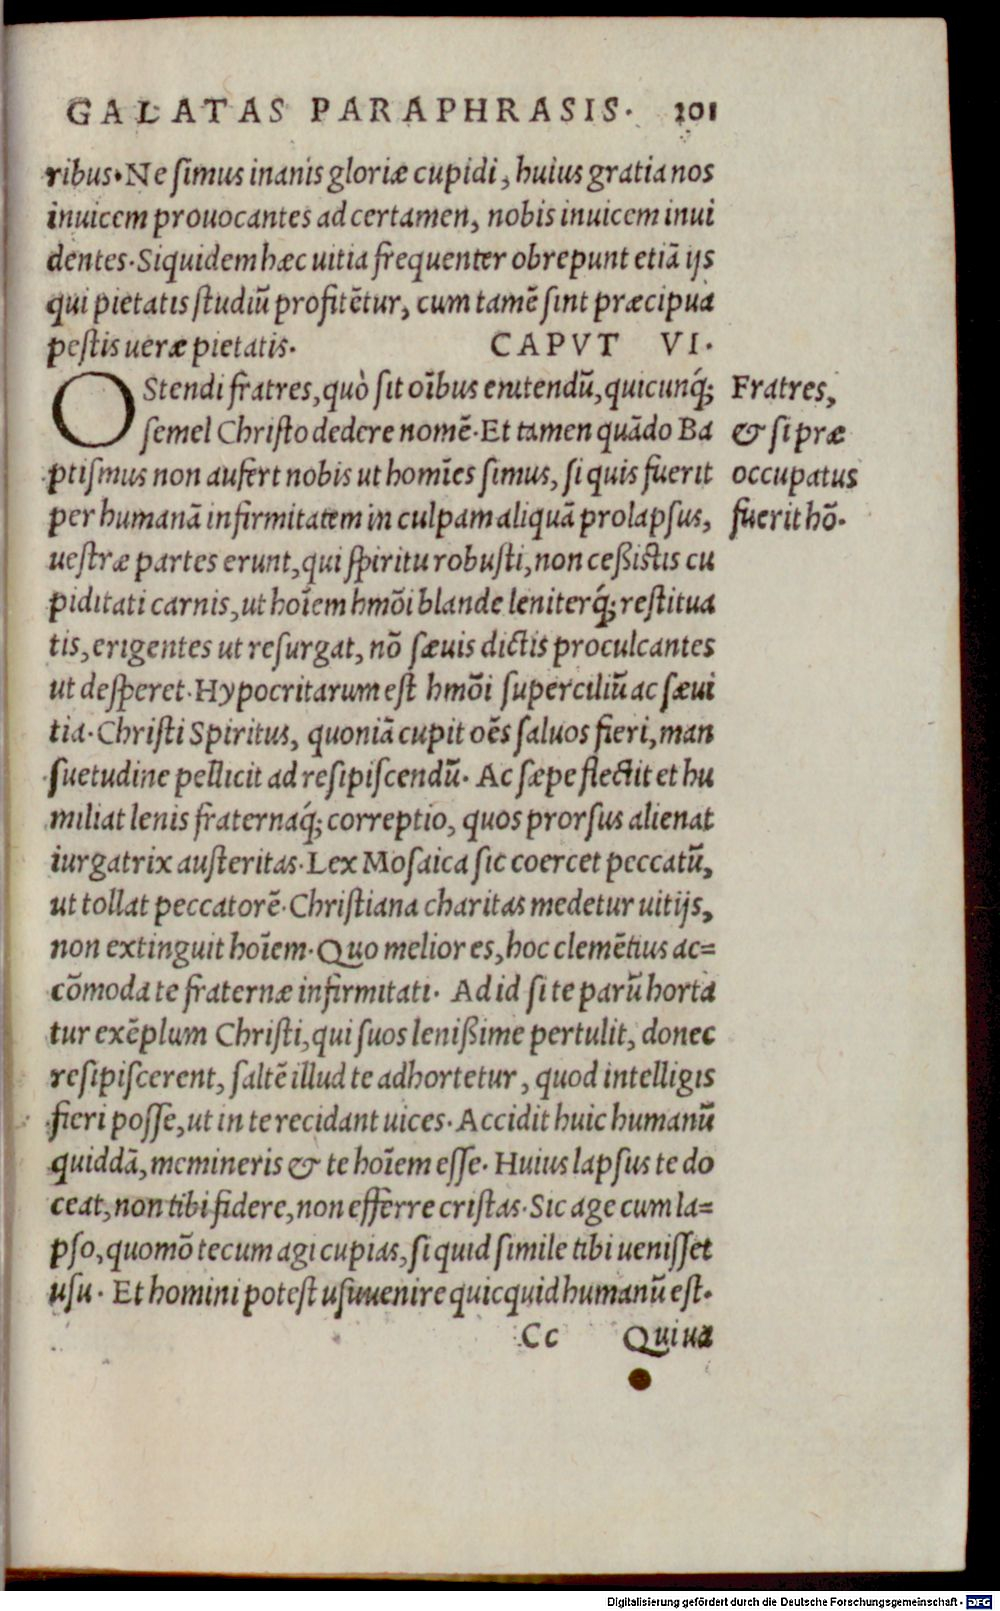 GALATAS PARAPHRASIS. 201
ribus. Ne simus inanis gloriæ cupidi, huius gratia nos
inuicem prouocantes ad certamen, nobis inuicem inui
dentes. Siquidem hæc uitia frequenter obrepunt etiā ijs
qui pietatis studiū profitētur, cum tamē sint præcipua
pestis ueræ pietatis. CAPVT VI.
OStendi fratres, quò sit oībus enitendū, quicunq́;
semel Christo dedere nomē. Et tamen quādo Ba
ptismus non aufert nobis ut homīes simus, si quis fuerit
per humanā infirmitatem in culpam aliquā prolapsus,
uestræ partes erunt, qui spiritu robusti, non ceßistis cu
piditati carnis, ut hoīem hmōi blande leniterq́; restitua
tis, erigentes ut resurgat, nō sæuis dictis proculcantes
ut desperet. Hypocritarum est hmōi superciliū ac sæui
tia. Christi Spiritus, quoniā cupit oēs saluos fieri, man
suetudine pellicit ad resipiscendū. Ac sæpe flectit et hu
miliat lenis fraternaq́; correptio, quos prorsus alienat
iurgatrix austeritas. Lex Mosaica sic coercet peccatū,
ut tollat peccatorē. Christiana charitas medetur uitijs,
non extinguit hoīem. Quo melior es, hoc clemētius ac=
cōmoda te fraternæ infirmitati. Ad id si te parū horta
tur exēplum Christi, qui suos lenißime pertulit, donec
resipiscerent, saltē illud te adhortetur, quod intelligis
fieri posse, ut in te recidant uices. Accidit huic humanū
quiddā, memineris & te hoīem esse. Huius lapsus te do
ceat, non tibi fidere, non efferre cristas. Sic age cum la=
pso, quomō tecum agi cupias, si quid simile tibi uenisset
usu. Et homini potest usuuenire quicquid humanū est.
Cc Qui ua
Fratres,
& si præ
occupatus
fuerit hō.
Digitalisierung gefördert durch die Deutsche Forschungsgemeinschaft - DFG